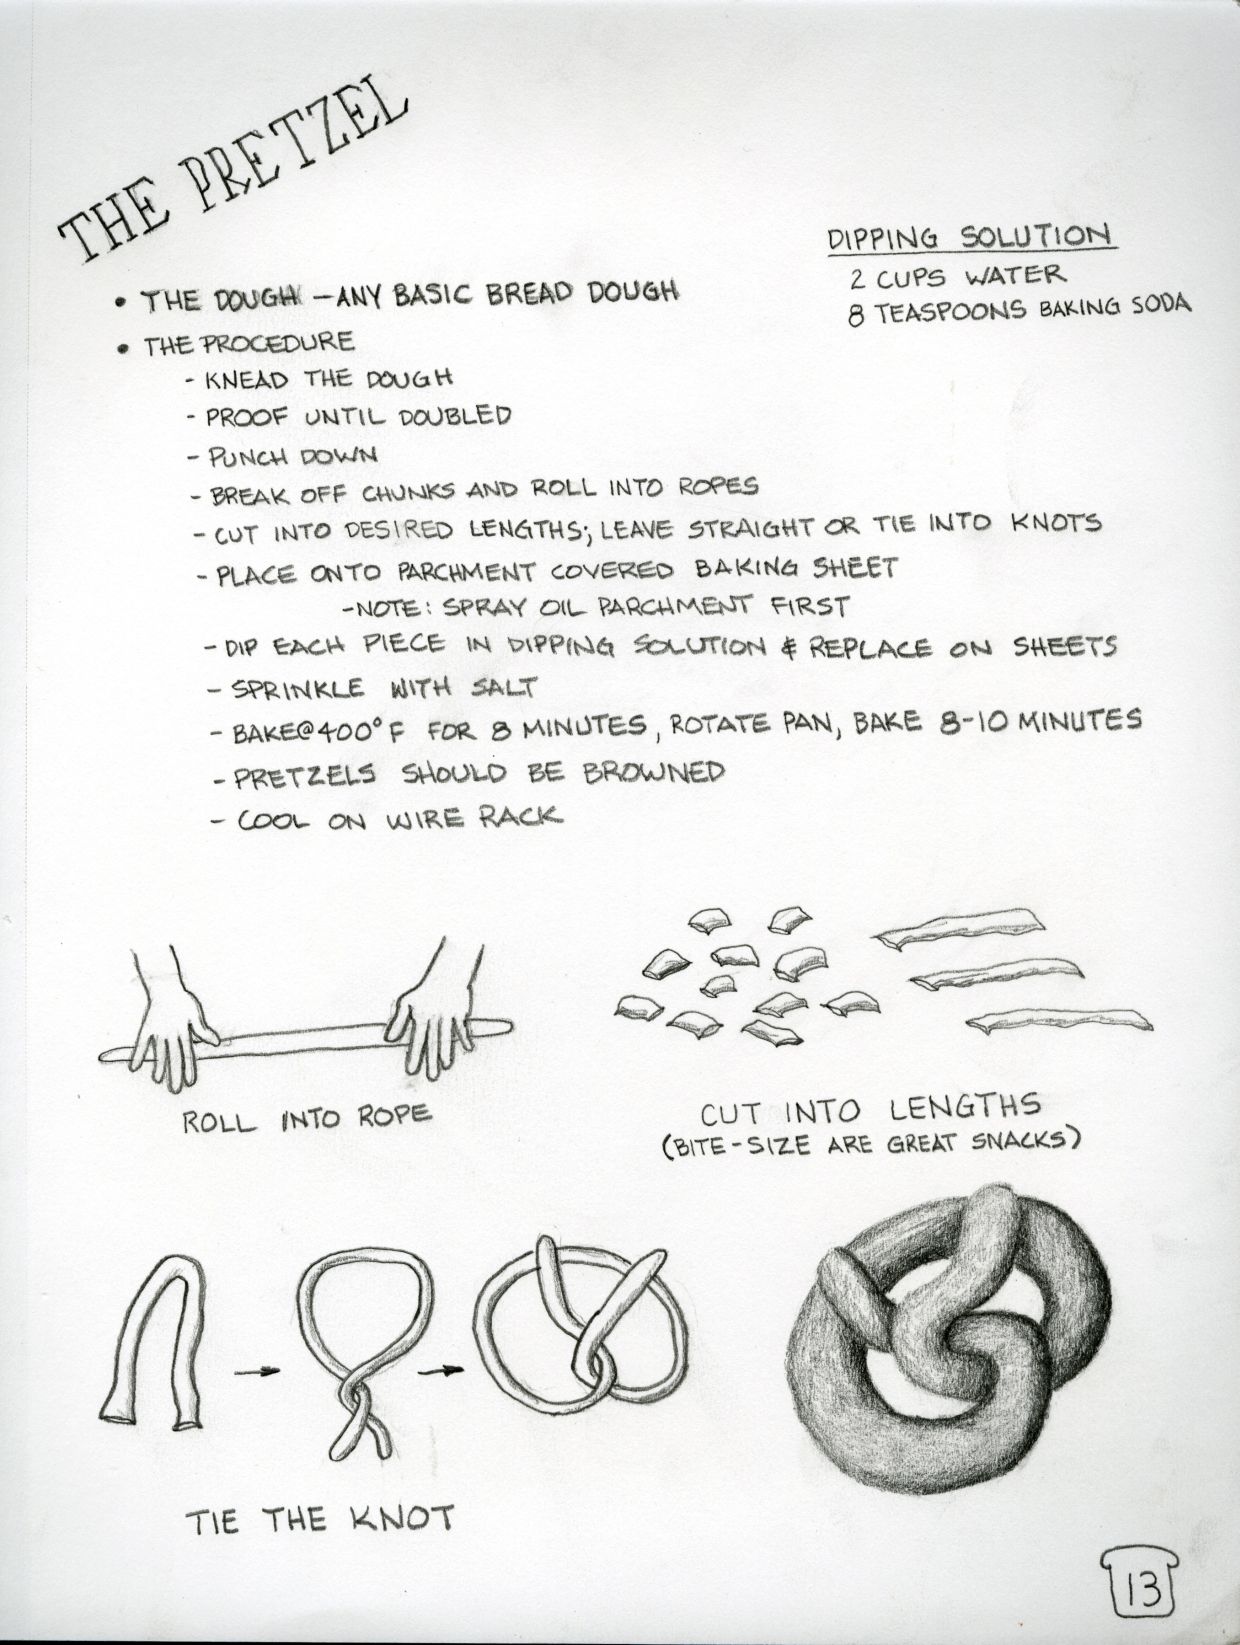 THE PRETZEL
DIPPING SOLUTION
2 CUPS WATER
8 TEASPOONS BAKING SODA
• THE DOUGH - ANY BASIC BREAD DOUGH
• THE PROCEDURE
- KNEAD THE DOUGH
- PROOF UNTIL DOUBLED
- PUNCH DOWN
- BREAK OFF CHUNKS AND ROLL INTO ROPES
- CUT INTO DESIRED LENGTHS; LEAVE STRAIGHT OR TIE INTO KNOTS
- PLACE ONTO PARCHMENT COVERED BAKING SHEET
- NOTE: SPRAY OIL PARCHMENT FIRST
- DIP EACH PIECE IN DIPPING SOLUTION & REPLACE ON SHEETS
- SPRINKLE WITH SALT
- BAKE@400°F FOR 8 MINUTES, ROTATE PAN, BAKE 8-10 MINUTES
- PRETZELS SHOULD BE BROWNED
- COOL ON WIRE RACK
ROLL INTO ROPE
CUT INTO LENGTHS
(BITE-SIZE ARE GREAT SNACKS)
TIE THE KNOT
13